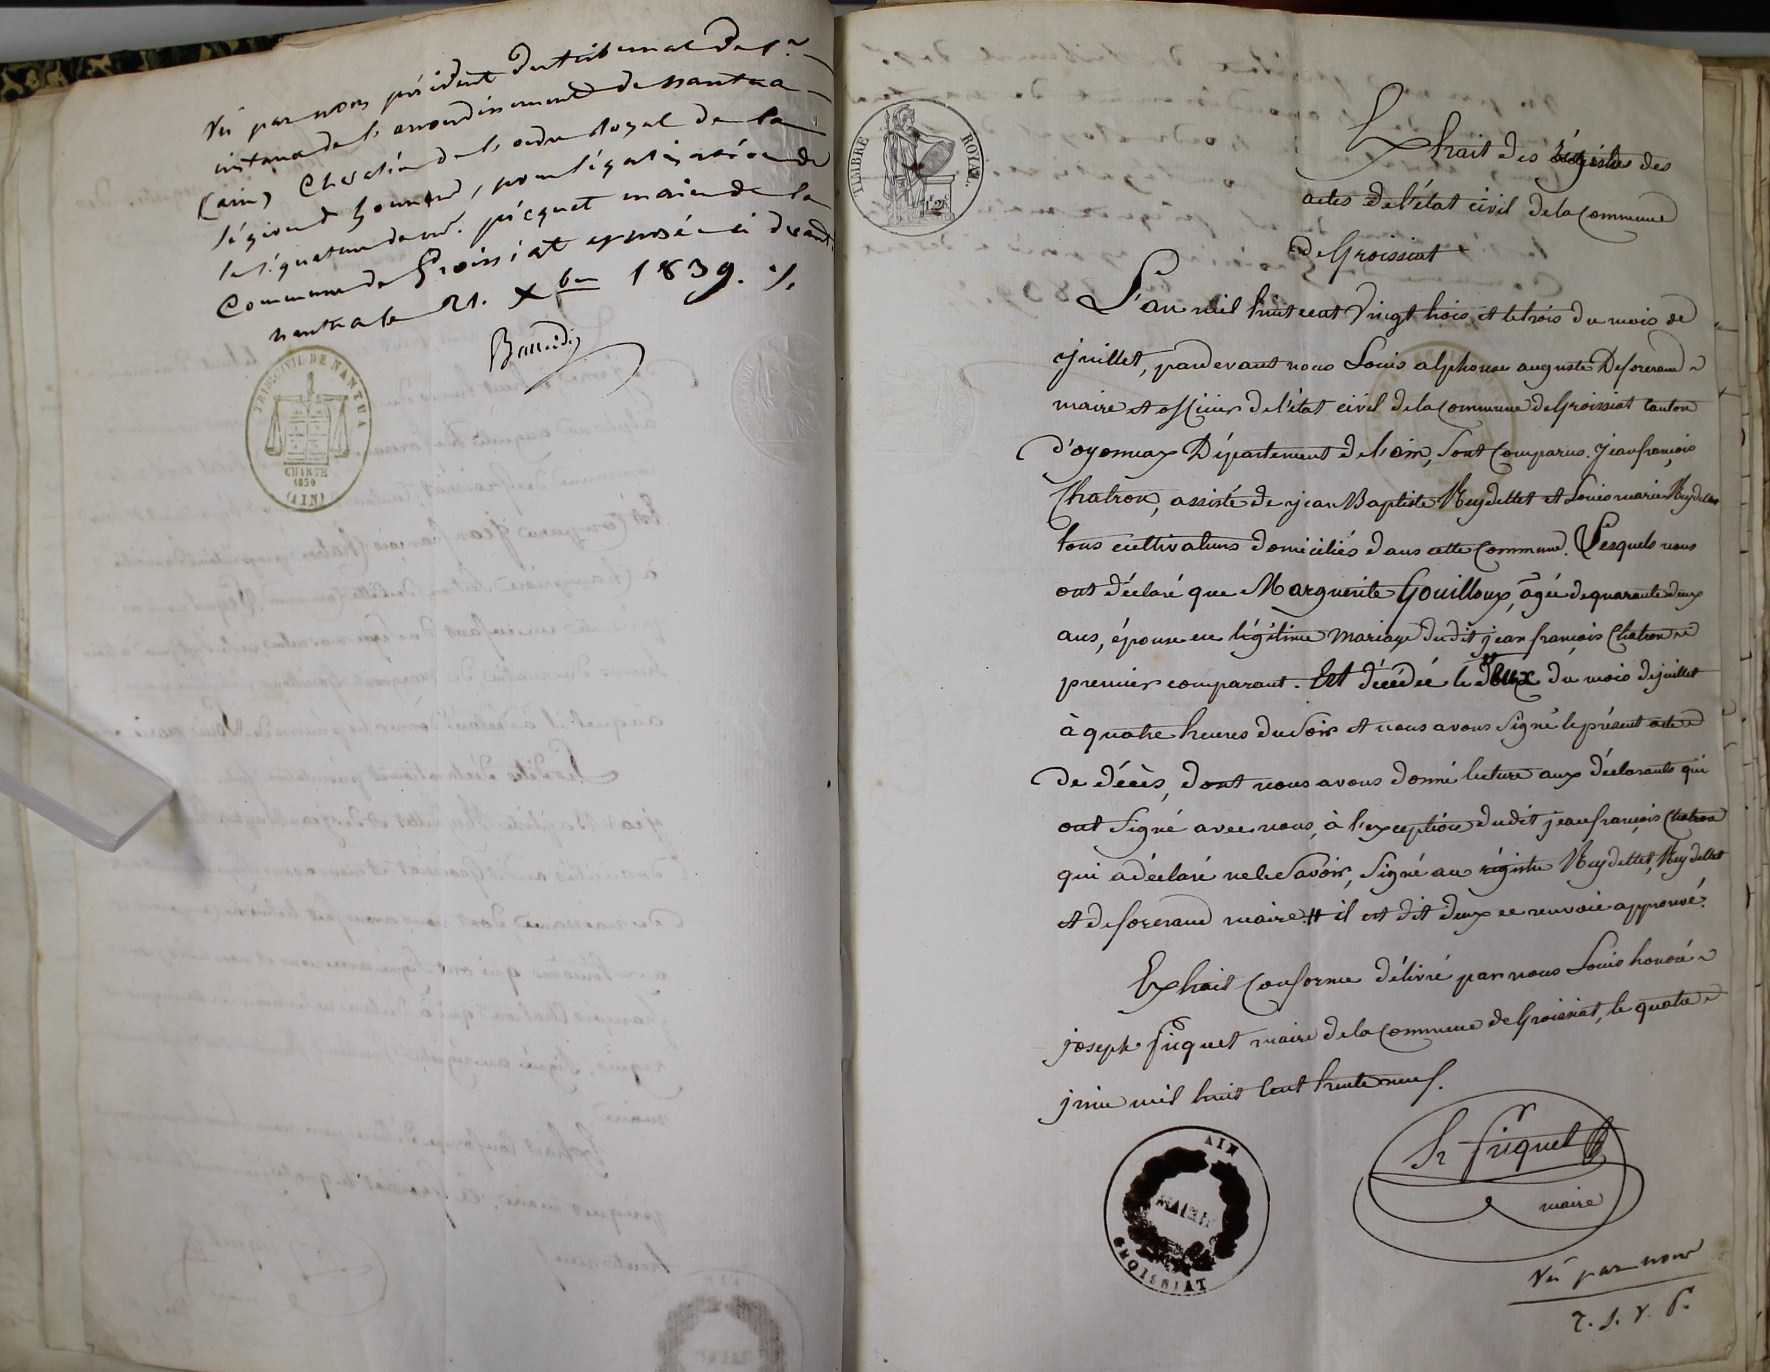 Vû par nous président du tribunal de 1re
instance de l'arrondissement de nantua
(ain) Chevalier de l'ordre Royal de la
légion d'honneur, pour légalisation de
la signature de mr. picquet maire de la
Commune de Groissiat apposée ci devant
nantua le 21. Xbre 1839. /.
TRIB. CIVIL DE NANTUA
CHARTE
1830
(AIN)
TIMBRE ROYAL
Extrait des régistres des
actes de l'état civil de la Commune
de Groissiat
L'an mil huit cent Vingt trois et le trois du mois de
juillet, pardevant nous Louis alphonse auguste Deforerand
maire et officier de l'état civil de la Commune de Groissiat Canton
d'oyonnax Département de l'ain, Sont Comparus. jean françois
Chatron, assisté de jean Baptiste Reydellet et Louis marie Reydellet
tous cultivateurs domiciliés dans cette Commune. Lesquels nous
ont déclaré que Marguerite Gouilloux, agée de quarante deux
ans, épouse en légitime mariage dudit jean françois Chatron
premier comparant. Est décédée le deux du mois de juillet
à quatre heures du Soir et nous avons Signé le présent acte
de décès, dont nous avons donné lecture aux déclarants qui
ont Signé avec nous, à l'exception dudit jean françois Chatron
qui a déclaré ne le Savoir, Signé au régistre Reydellet, Reydellet
et deforerand maire. # il est dit deux ce renvoie approuvé.
Extrait Conforme délivré par nous Louis honoré
joseph picquet maire de la Commune de Groissiat, le quatre
juin mil huit Cent trente neuf.
hr picquet
maire
AIN
MAIRIE
GROISSIAT
Vû par nous
T. S. V. P.